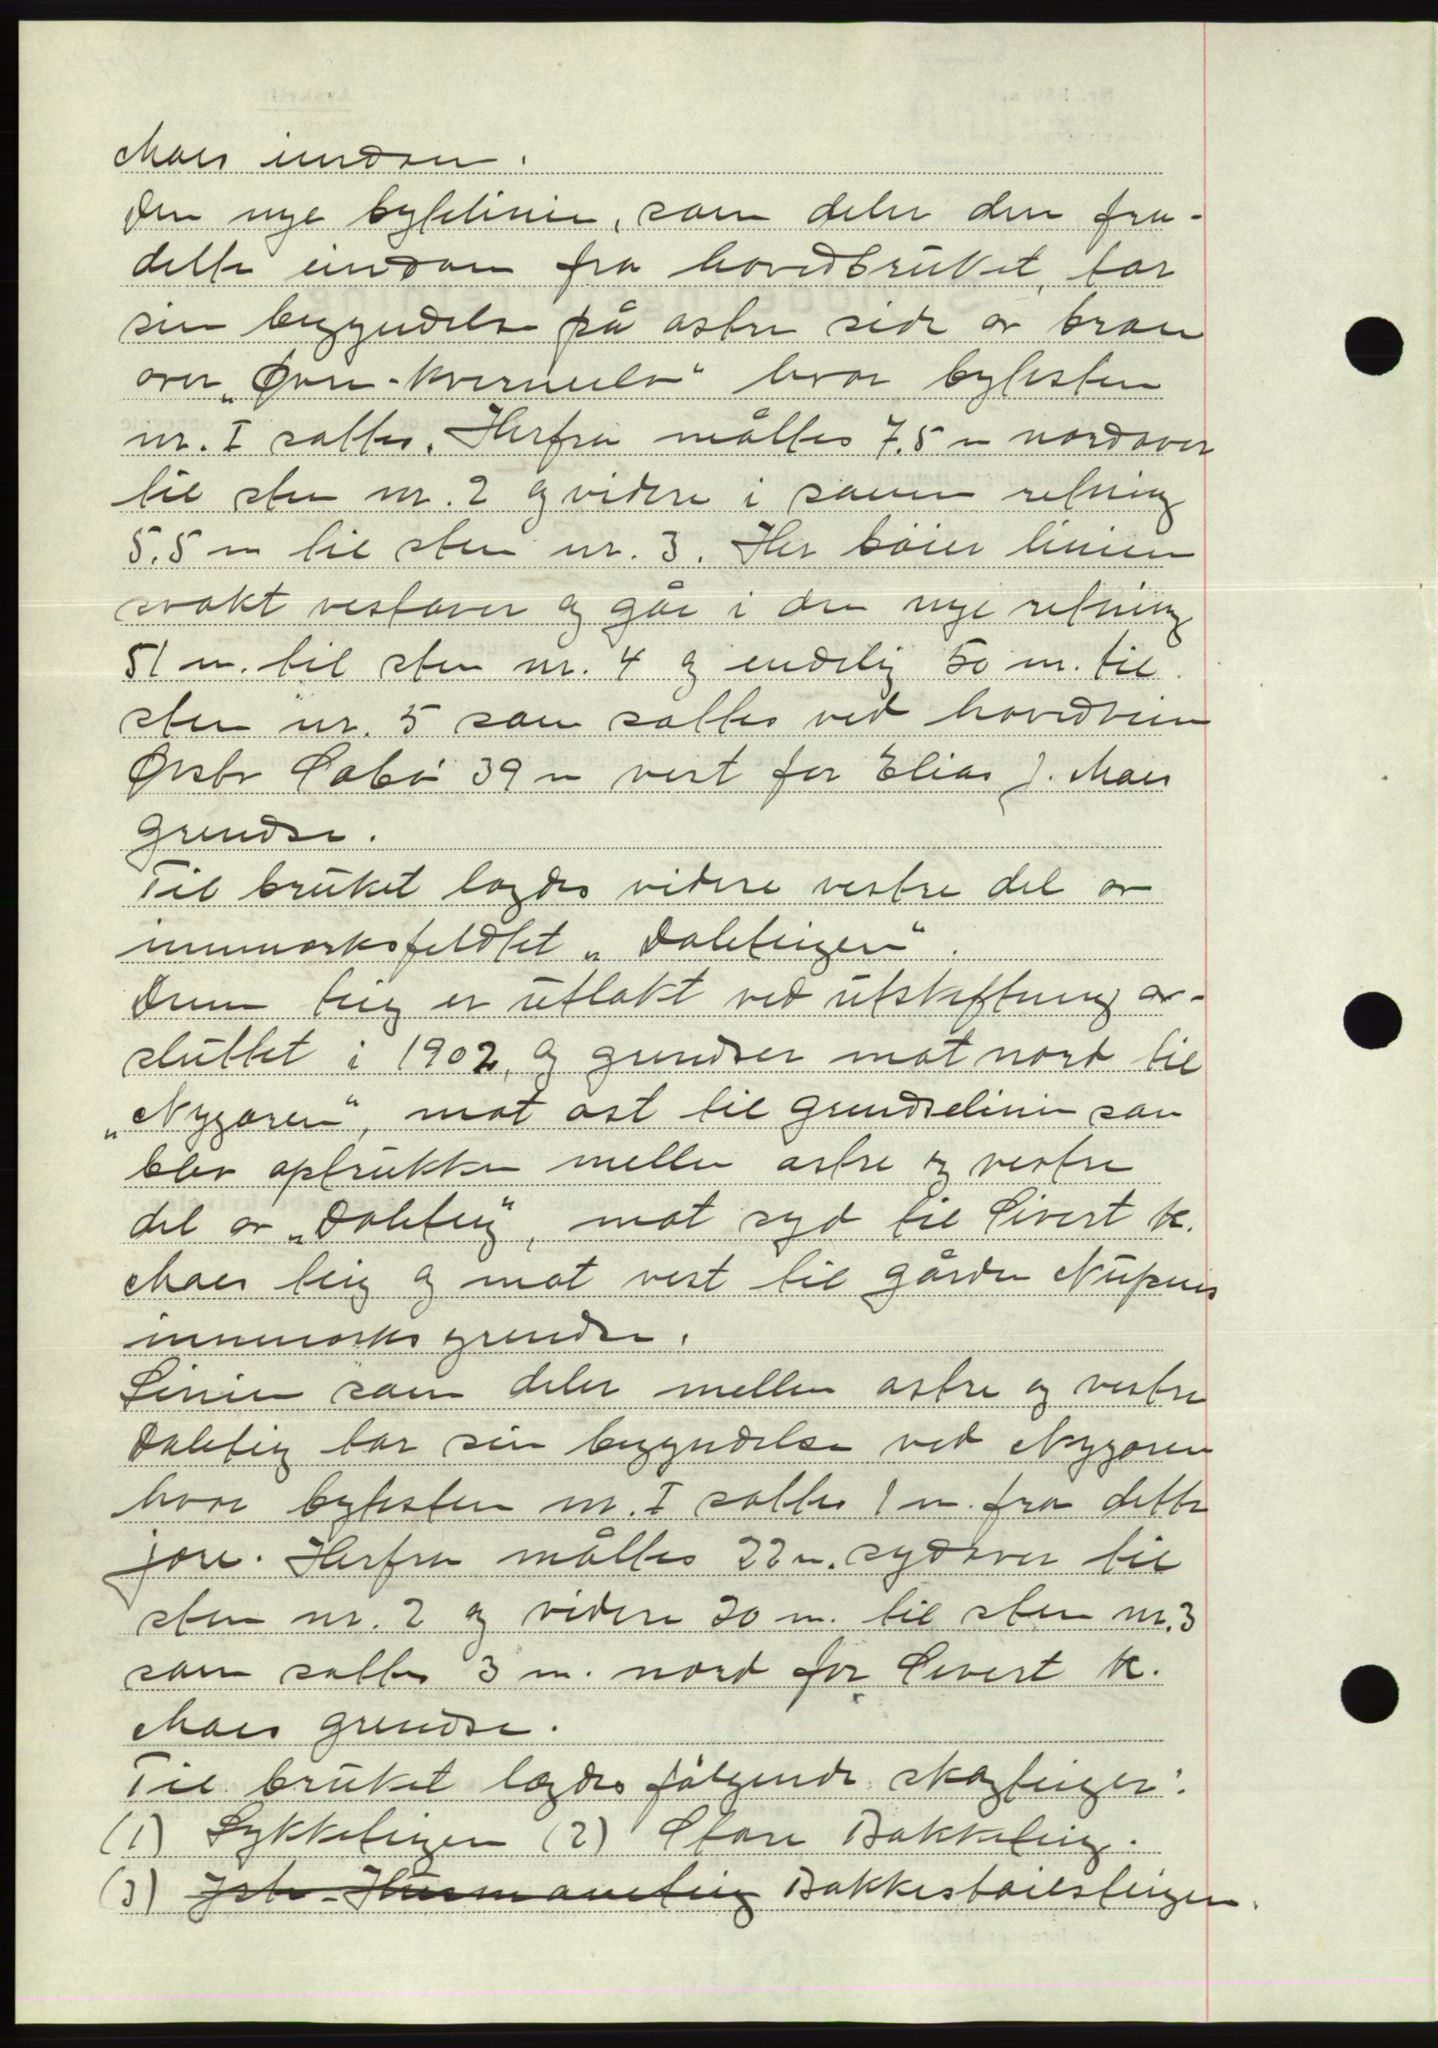 Moes eiendom.
Den nye bytelinie, som deler den fra-
delte eiendom fra hovedbruket, tar
sin begyndelse på østre side av broen
over „Øvre-Kvernelv" hvor bytesten
nr. I sattes. Herfra måltes 7.5 m nordover
til sten nr. 2 og videre i samme retning
5.5 m til sten nr. 3. Her bøier linien
svakt vestover og går i den nye retning
51 m. til sten nr. 4 og endelig 50 m. til
sten nr. 5 som sattes ved hovedveien
Ørsta 39 m vest for Elias J. Moes
grendse.
Til bruket lagdes videre vestre del av
innmarksfeldtet „Daleteigen".
Denne teig er utlakt ved utskiftning av-
sluttet i 1902, og grendser mot nord til
„Nygoren", mot øst til grendselinie som
blev optrukket mellem østre og vestre
del av „Daleteig", mot syd til Sivert K.
Moes teig og mot vest til gården Nupens
innmarks grendse.
Linien som deler mellem østre og vestre
Daleteig tar sin begyndelse ved Nygoren
hvor bytesten nr. I sattes 1 m. fra dette
jore. Herfra måltes 22 m. sydover til
sten nr. 2 og videre 20 m. til sten nr. 3
som sattes 3 m. nord for Sivert K.
Moes grendse.
Til bruket lagdes følgende skogteiger:
(1) Lykkjeteigen (2) Store Bakketeig.
(3) Ytste-Husmansteig Bakkestøilsteigen.